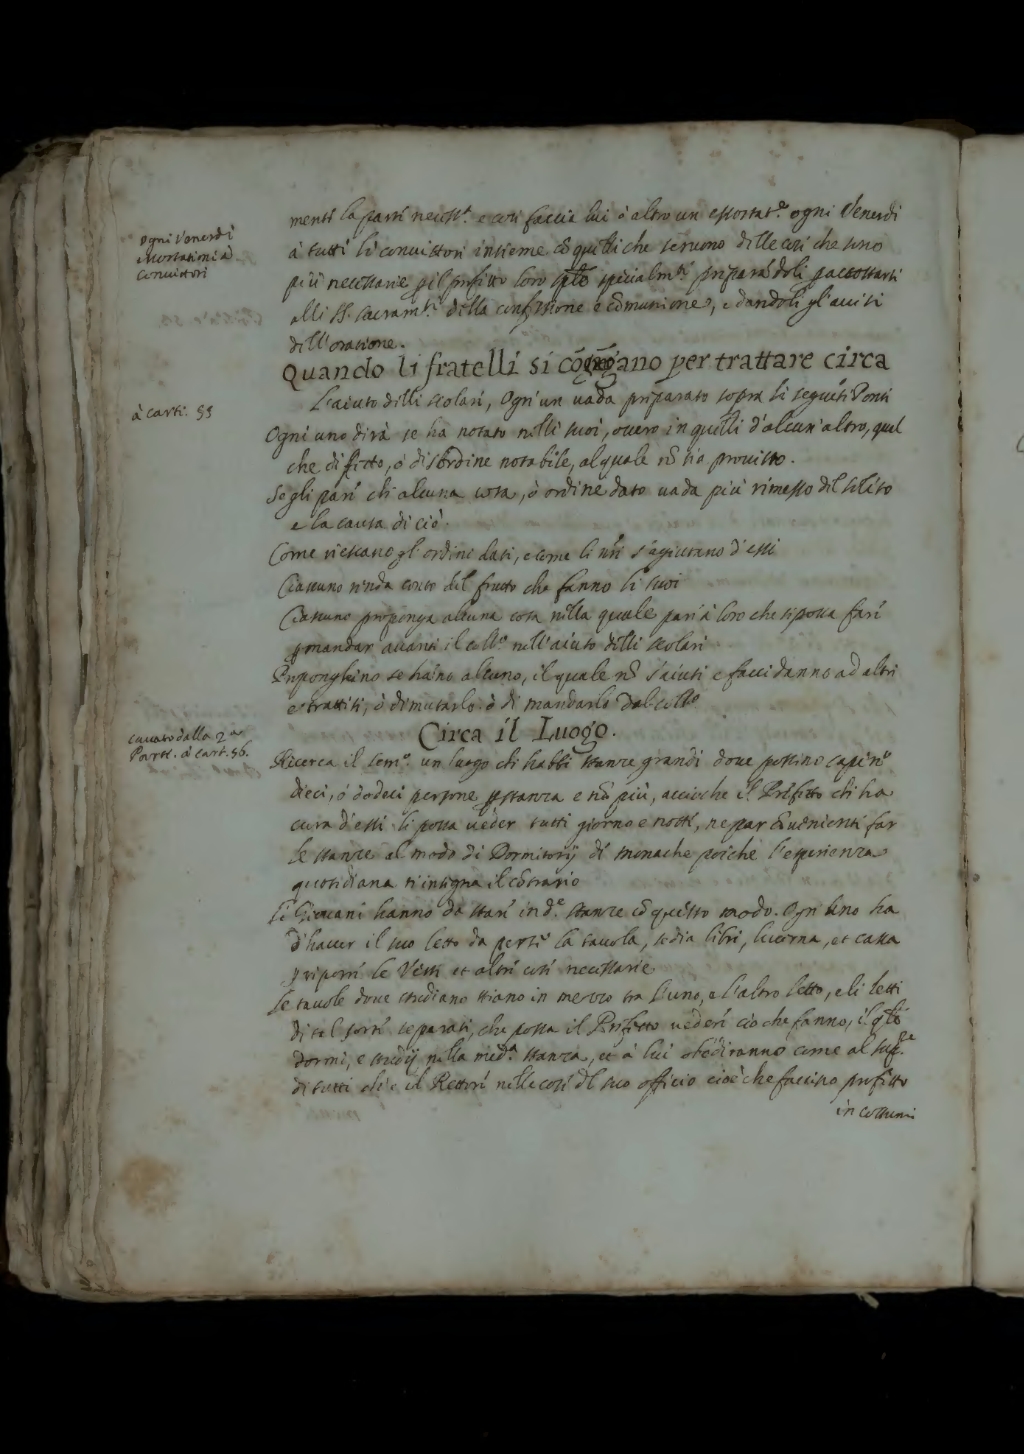 menti la parti necess.e e cosi faccia lui ò altro un essortat.e ogni Venerdi
ogni Venerdì
essortationi à
convittori
à tutti li convittori insieme cō quelli che servono delle cose che sono
più necessarie p il profitto loro spūle specialm.ti preparādoli p accostarsi
alli SS. sacram.ti della confessione e cōmunione, e dandoli gl'avisi
dell'oratione.
Quando li fratelli si cōgregano per trattare circa
à carti. 55
L'aiuto delli scolari, Ogn'un vada preparato sopra li seguēti Ponti
Ogni uno dirà se ha notato nelli suoi, overo in quelli d'alcun'altro, qual
che difetto, ò disordine notabile, al quale nō si a provisto.
Se gli pari chi alcuna cosa, ò ordine dato vada più rimesso del solito
e la causa di ciò.
Come riescano gl'ordini dati, e come li nr̄i s'agiutano d'essi
Ciascuno renda conto del frutto che fanno li suoi
Ciascuno proponga alcuna cosa nella quale pari à loro che si possa fari
p mandar avanti il coll.o nell'aiuto delli scolari
Proponghino se hāno alcuno, il quale nō s'aiuti e facci danno ad altri
e trattisi, ò di mutarlo ò di mandarlo dal coll.o
Circa il Luogo.
cavato dalla 2.a
Parte. à cart. 56.
Ricerca il sem.o un luogo chi habbi stanze grandi dove possino capir n.o
dieci, ó dodeci persone p stanza e nō più, accioche il Prefetto chi ha
cura d'essi li possa veder tutti giorno e notti, ne par cōvenienti far
le stanze al modo di Dormitorij di monache poiche l'esperienza
quotidiana ti insegna il cōtrario
Li Giovani hanno da stari in d.e stanze cō questo modo. Ogn'uno ha
d'haver il suo letto da per se la tavola, sedia libri, lucerna, et cassa
p riporri le Vesti et altri cosi necessarie
Le tavole dove studiano stiano in mezzo tra l'uno, e l'altro letto, e li letti
di tal sorti separati, che possa il Prefetto vederi cio che fanno, il qle
dormi, e studij nella med.a stanza, et à lui obediranno come al sup.re
di tutti chi è il Rettori nelle cosi del suo officio cioè che faccino profitto
in costumi